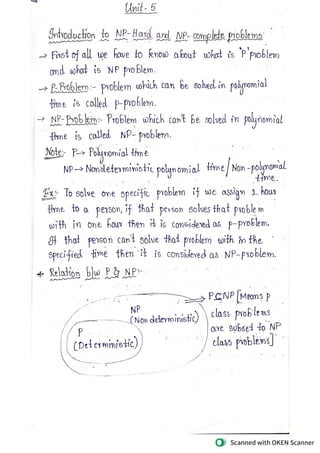 Unit-5
Introduction to NP-Hard and NP-complete problems
→ First of all we have to know about what is 'P' problem
and what is NP problem.
→ P-Problem:- problem which can be solved in polynomial
time is called p-problem.
→ NP-Problem:- Problem which can't be solved in polynomial
time is called NP-problem.
Note:- P→ Polynomial time
NP→ Nondeterministic polynomial time/Non-polynomial
time.
Ex:- To solve one specific problem if we assign 1 hour
time to a person, if that person solves that problem
with in one hour then it is considered as p-problem.
If that person can't solve that problem with in the
specified time then it is considered as NP-problem.
* Relation b/w P & NP:-
P⊆NP [Means P
class problems
are subset to NP
class problems]
NP
(Non deterministic)
P
(Deterministic)
Scanned with OKEN Scanner